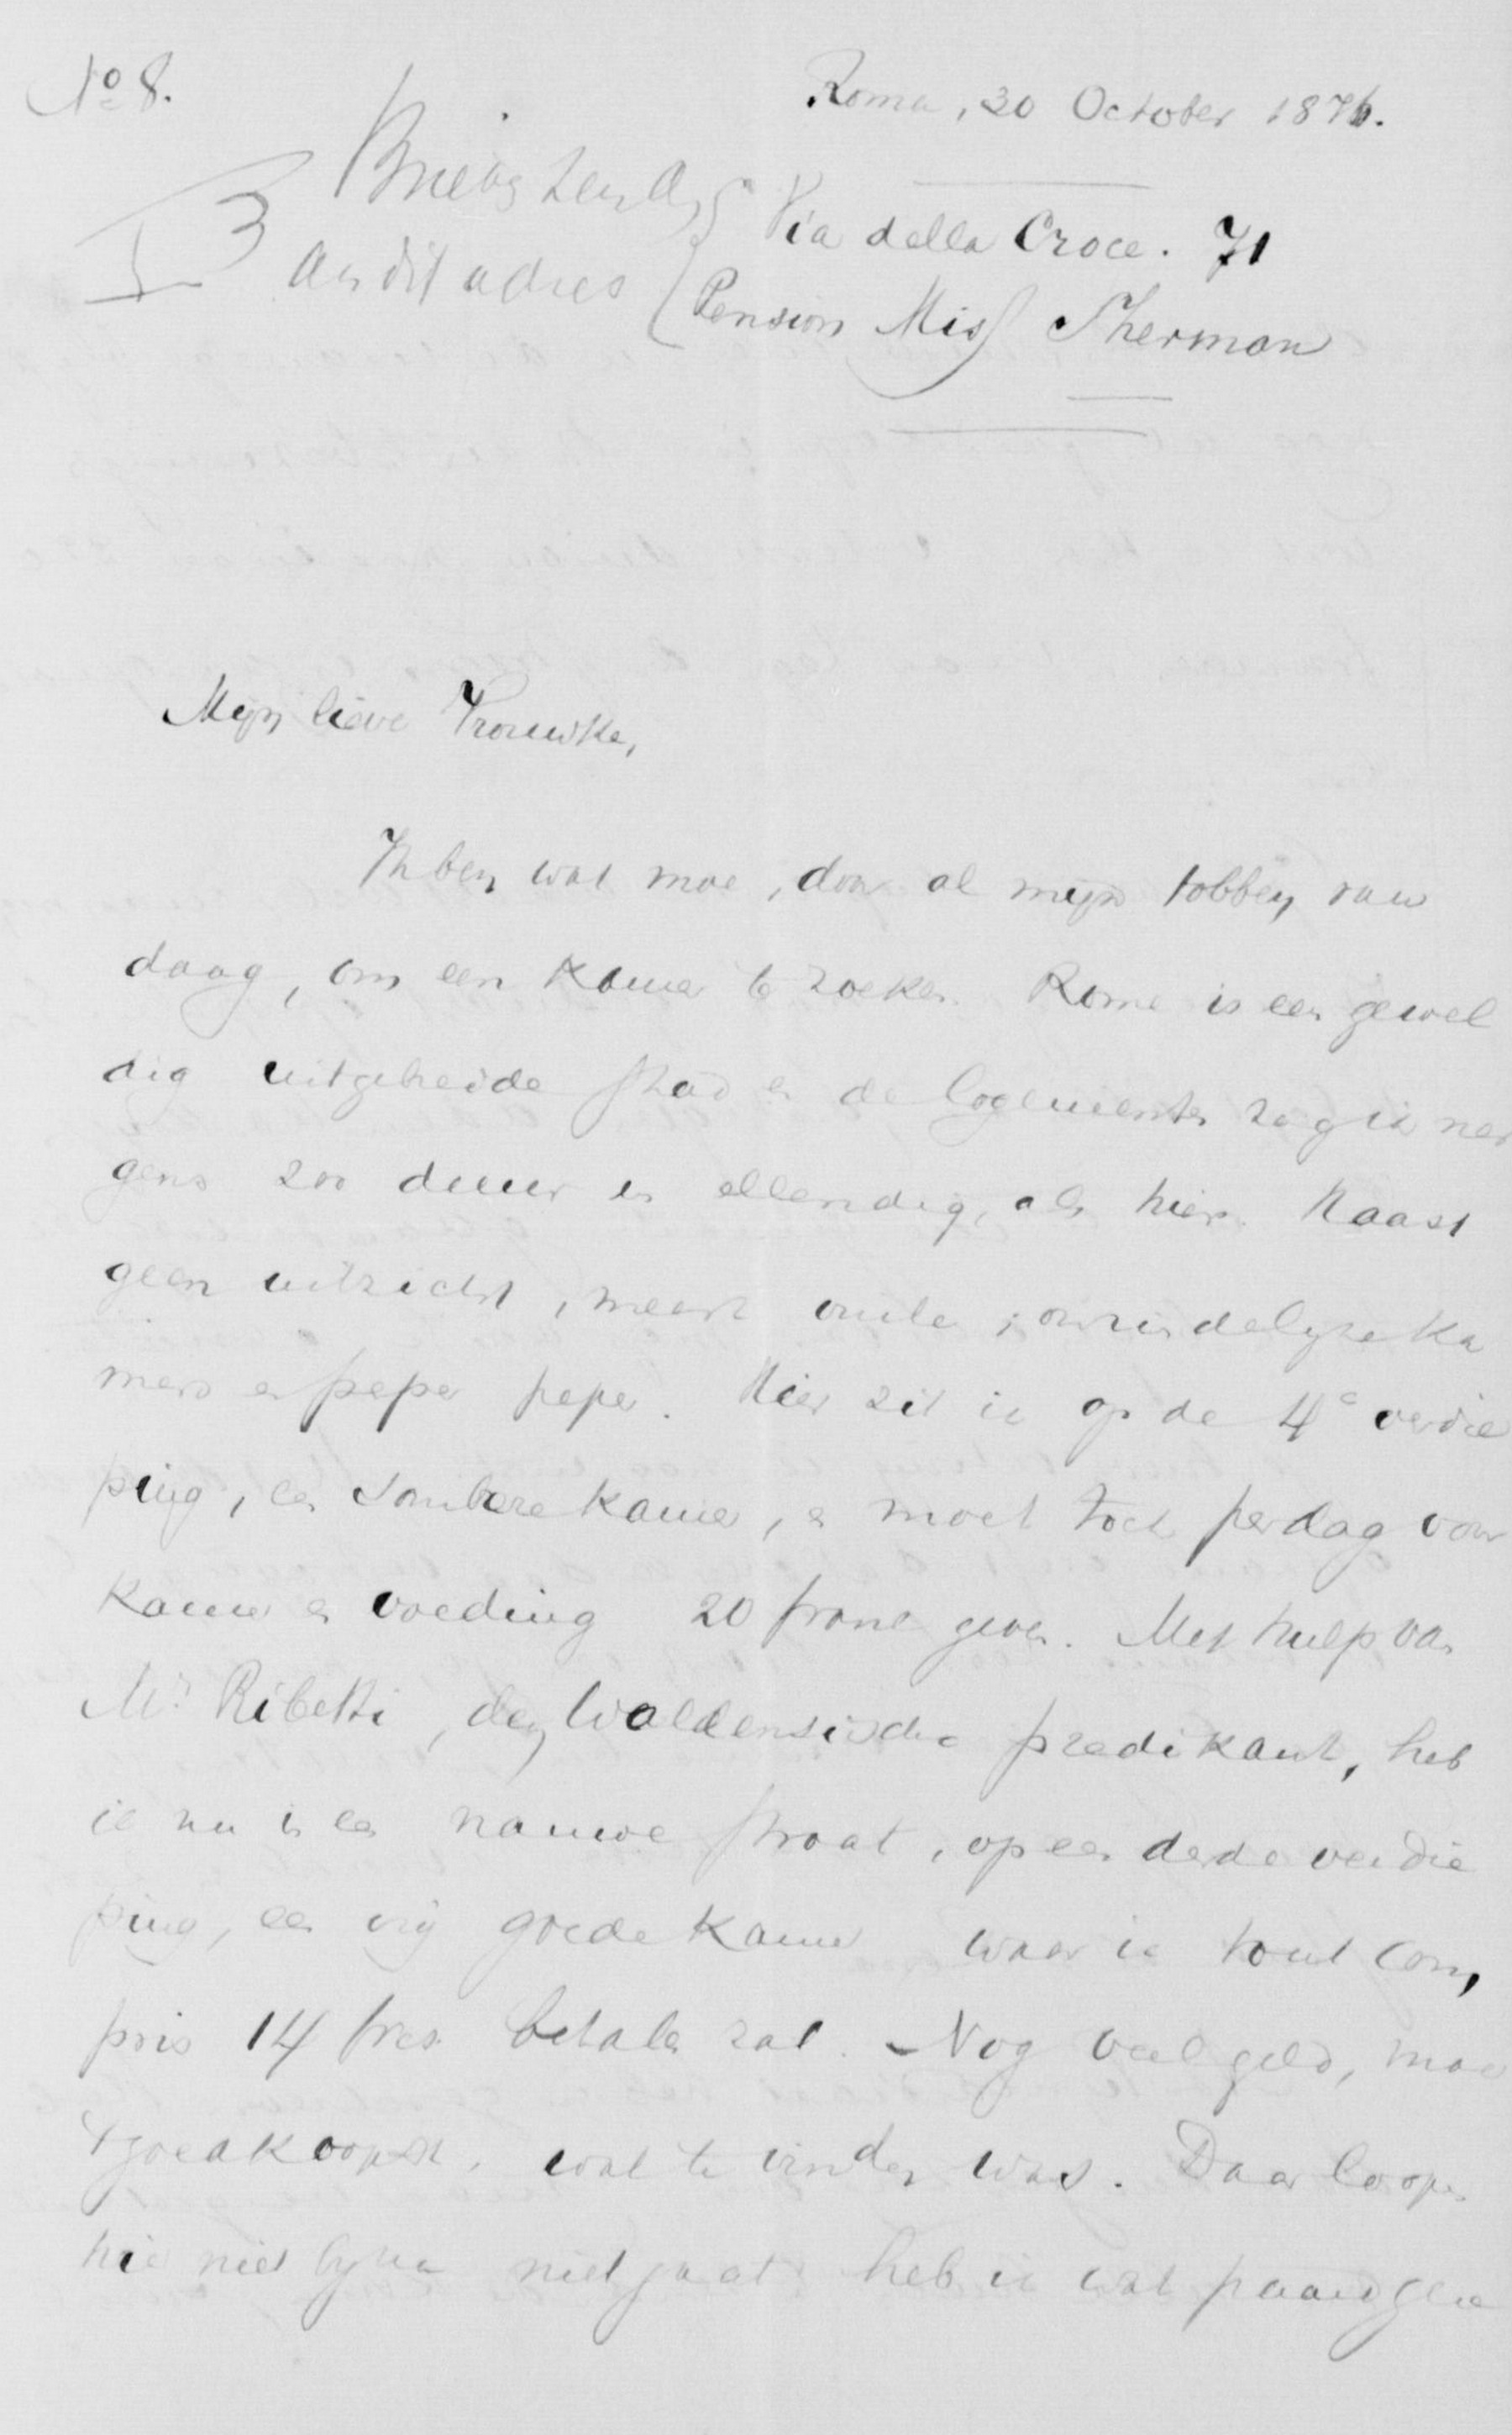 No 8.
Roma, 20 October 1876.
Briefs zend
aan dit adres
Via della Croce. 71
Pension Miss Sherman
Mijn lieve Vrouwke,
Ik ben wat moe, door al mijn tobben van
daag, om een kamer te zoeken. Rome is een gewel
dig uitgebreide stad en de logementen zag ik ner
gens zoo duur en ellendig, als hier. Naast
geen uitzicht, meest vuile, onvriendelijke ka
mers en peper peper. Hier zit ik op de 4e verdie
ping, een sombere kamer, en moet toch per dag voor
kamer en voeding 20 franc geven. Met hulp van
Mr. Ribetti, den Waldensische predikant, heb
ik nu in een nauwe straat, op een derde verdie
ping, een vrij goede kamer waar ik tout com,
pris 14 frcs. betalen zal. Nog veel geld, maar
't goedkoopst, wat te vinden was. Daar loopen
hier niet bijna niet gaat heb ik wat